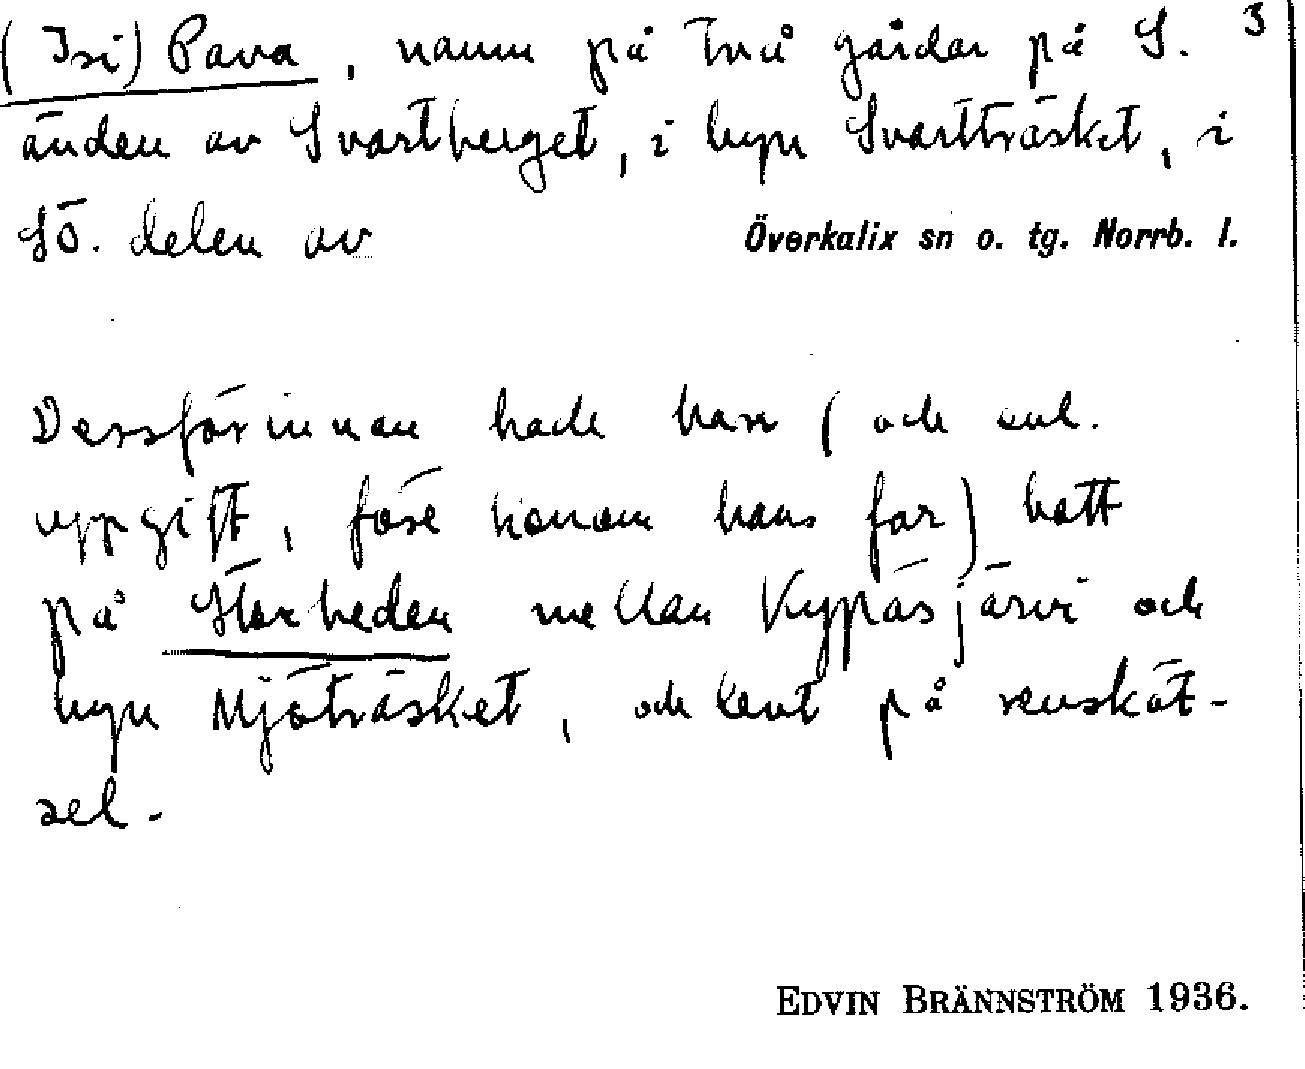 (Isi) Pava, namn på två gårdar på S. 3
änden av Svartberget, i byn Svartträsket, i
SÖ. delen av Överkalix sn o. tg. Norrb. l.
Dessförinnan hade han (och enl.
uppgift, före honom hans far) hatt
på Storheden mellan Kypäsjärvi och
byn Mjöträsket, och levt på rensköt-
sel.
EDVIN BRÄNNSTRÖM 1936.